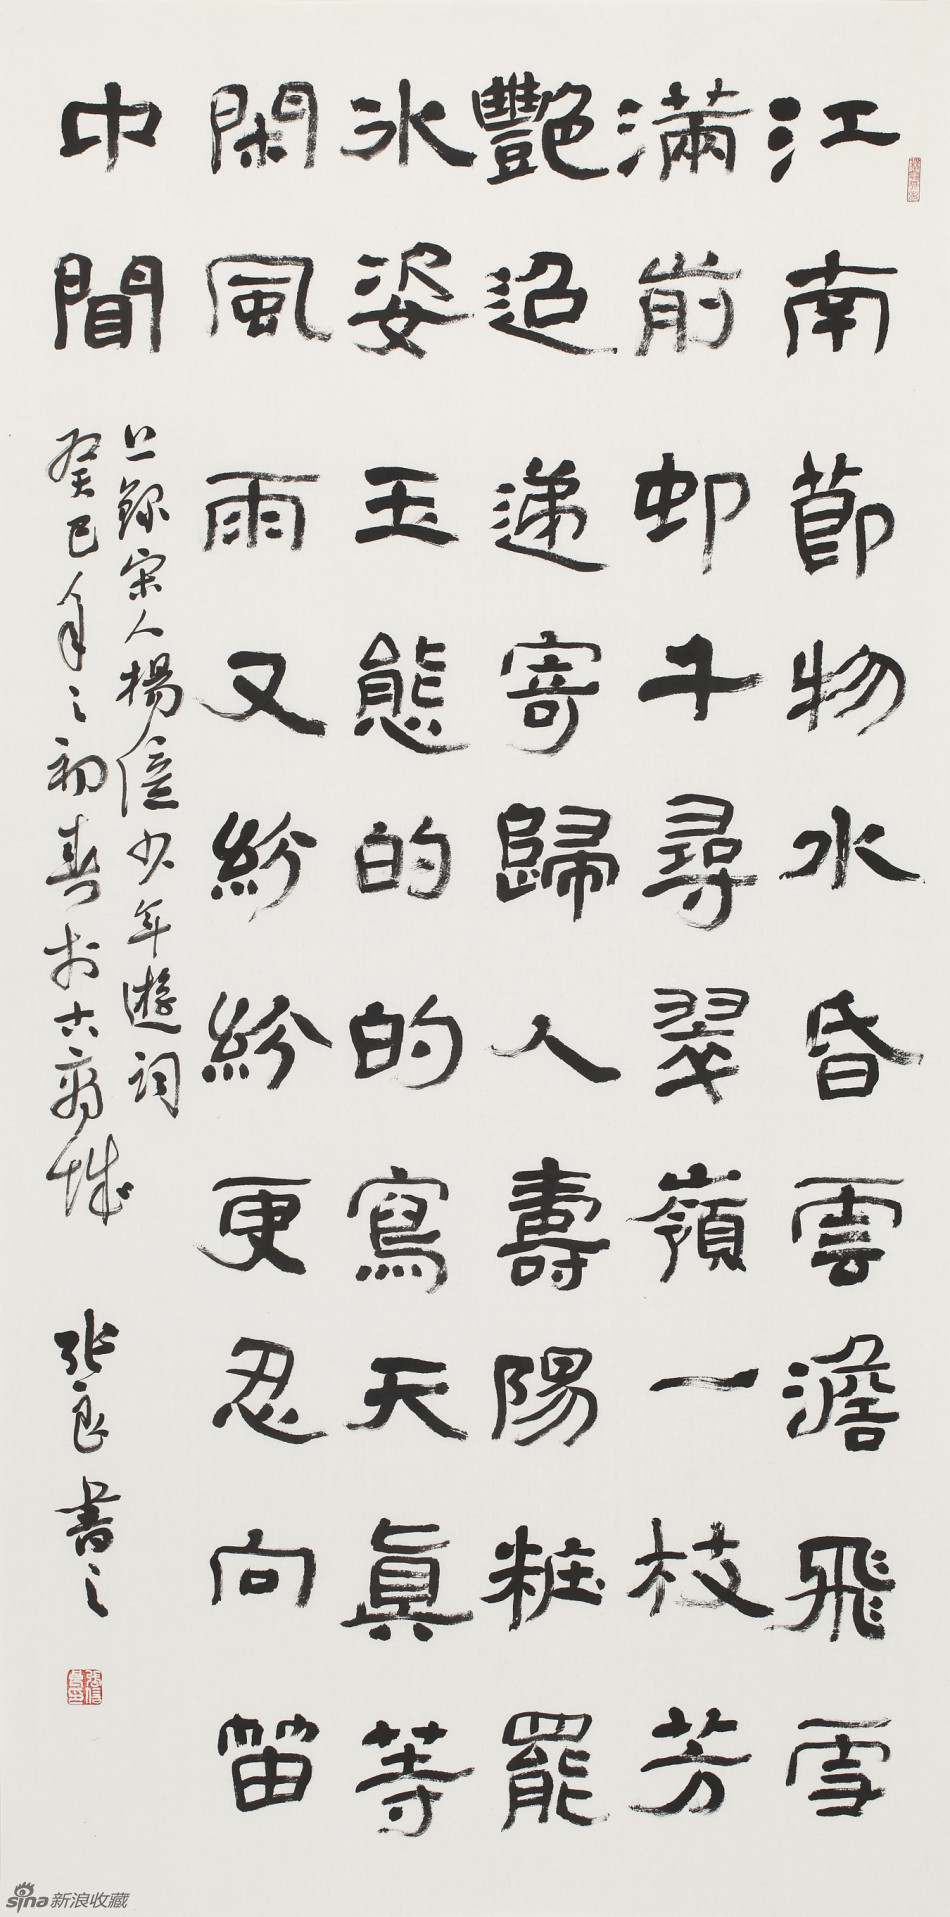 江南節物水昏雲澹飛雪
滿前邨千尋翠嶺一枝芳
豔迢遞寄歸人壽陽粧罷
冰姿玉態的的寫天真等
閑風雨又紛紛更忍向笛
中聞
上錄宋人楊億少年遊詞
癸巳年之初春於古城 張良書之
sina新浪收藏